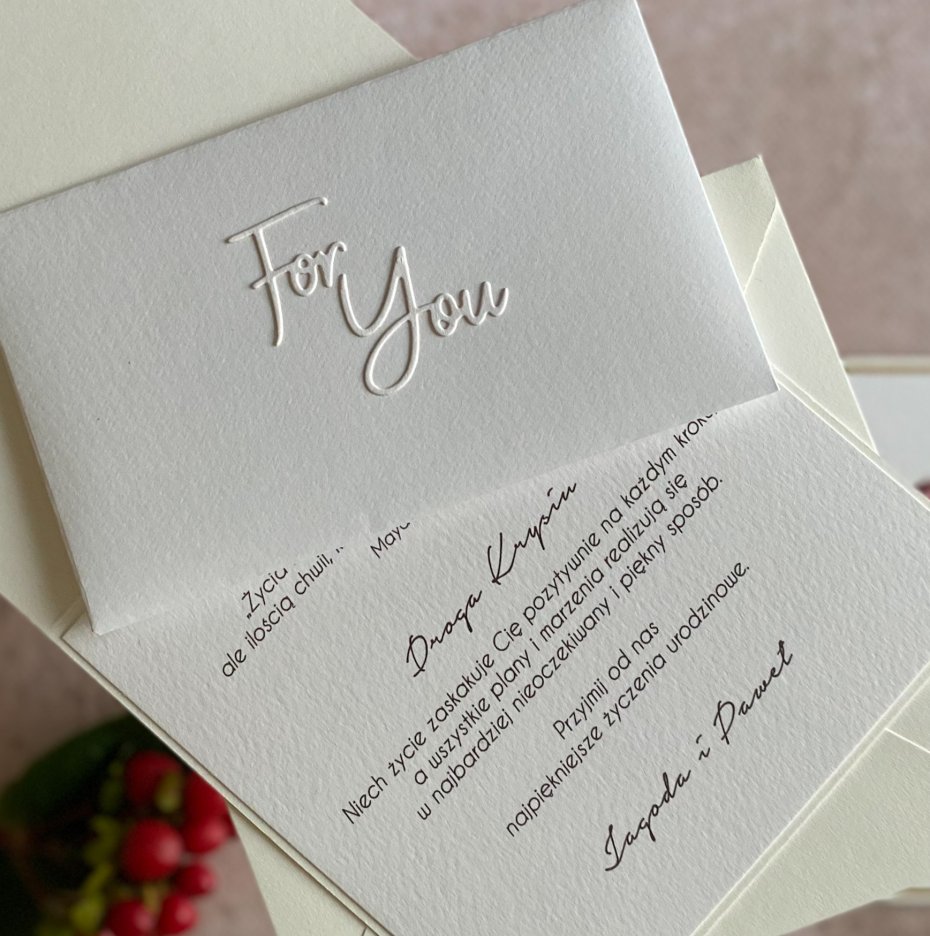 For
You
„Życie
ale ilością chwil,
Droga Krysiu
Niech życie zaskakuje Cię pozytywnie na każdym kroku
a wszystkie plany i marzenia realizują się
w najbardziej nieoczekiwany i piękny sposób.
Przyjmij od nas
najpiękniejsze życzenia urodzinowe.
Jagoda i Paweł